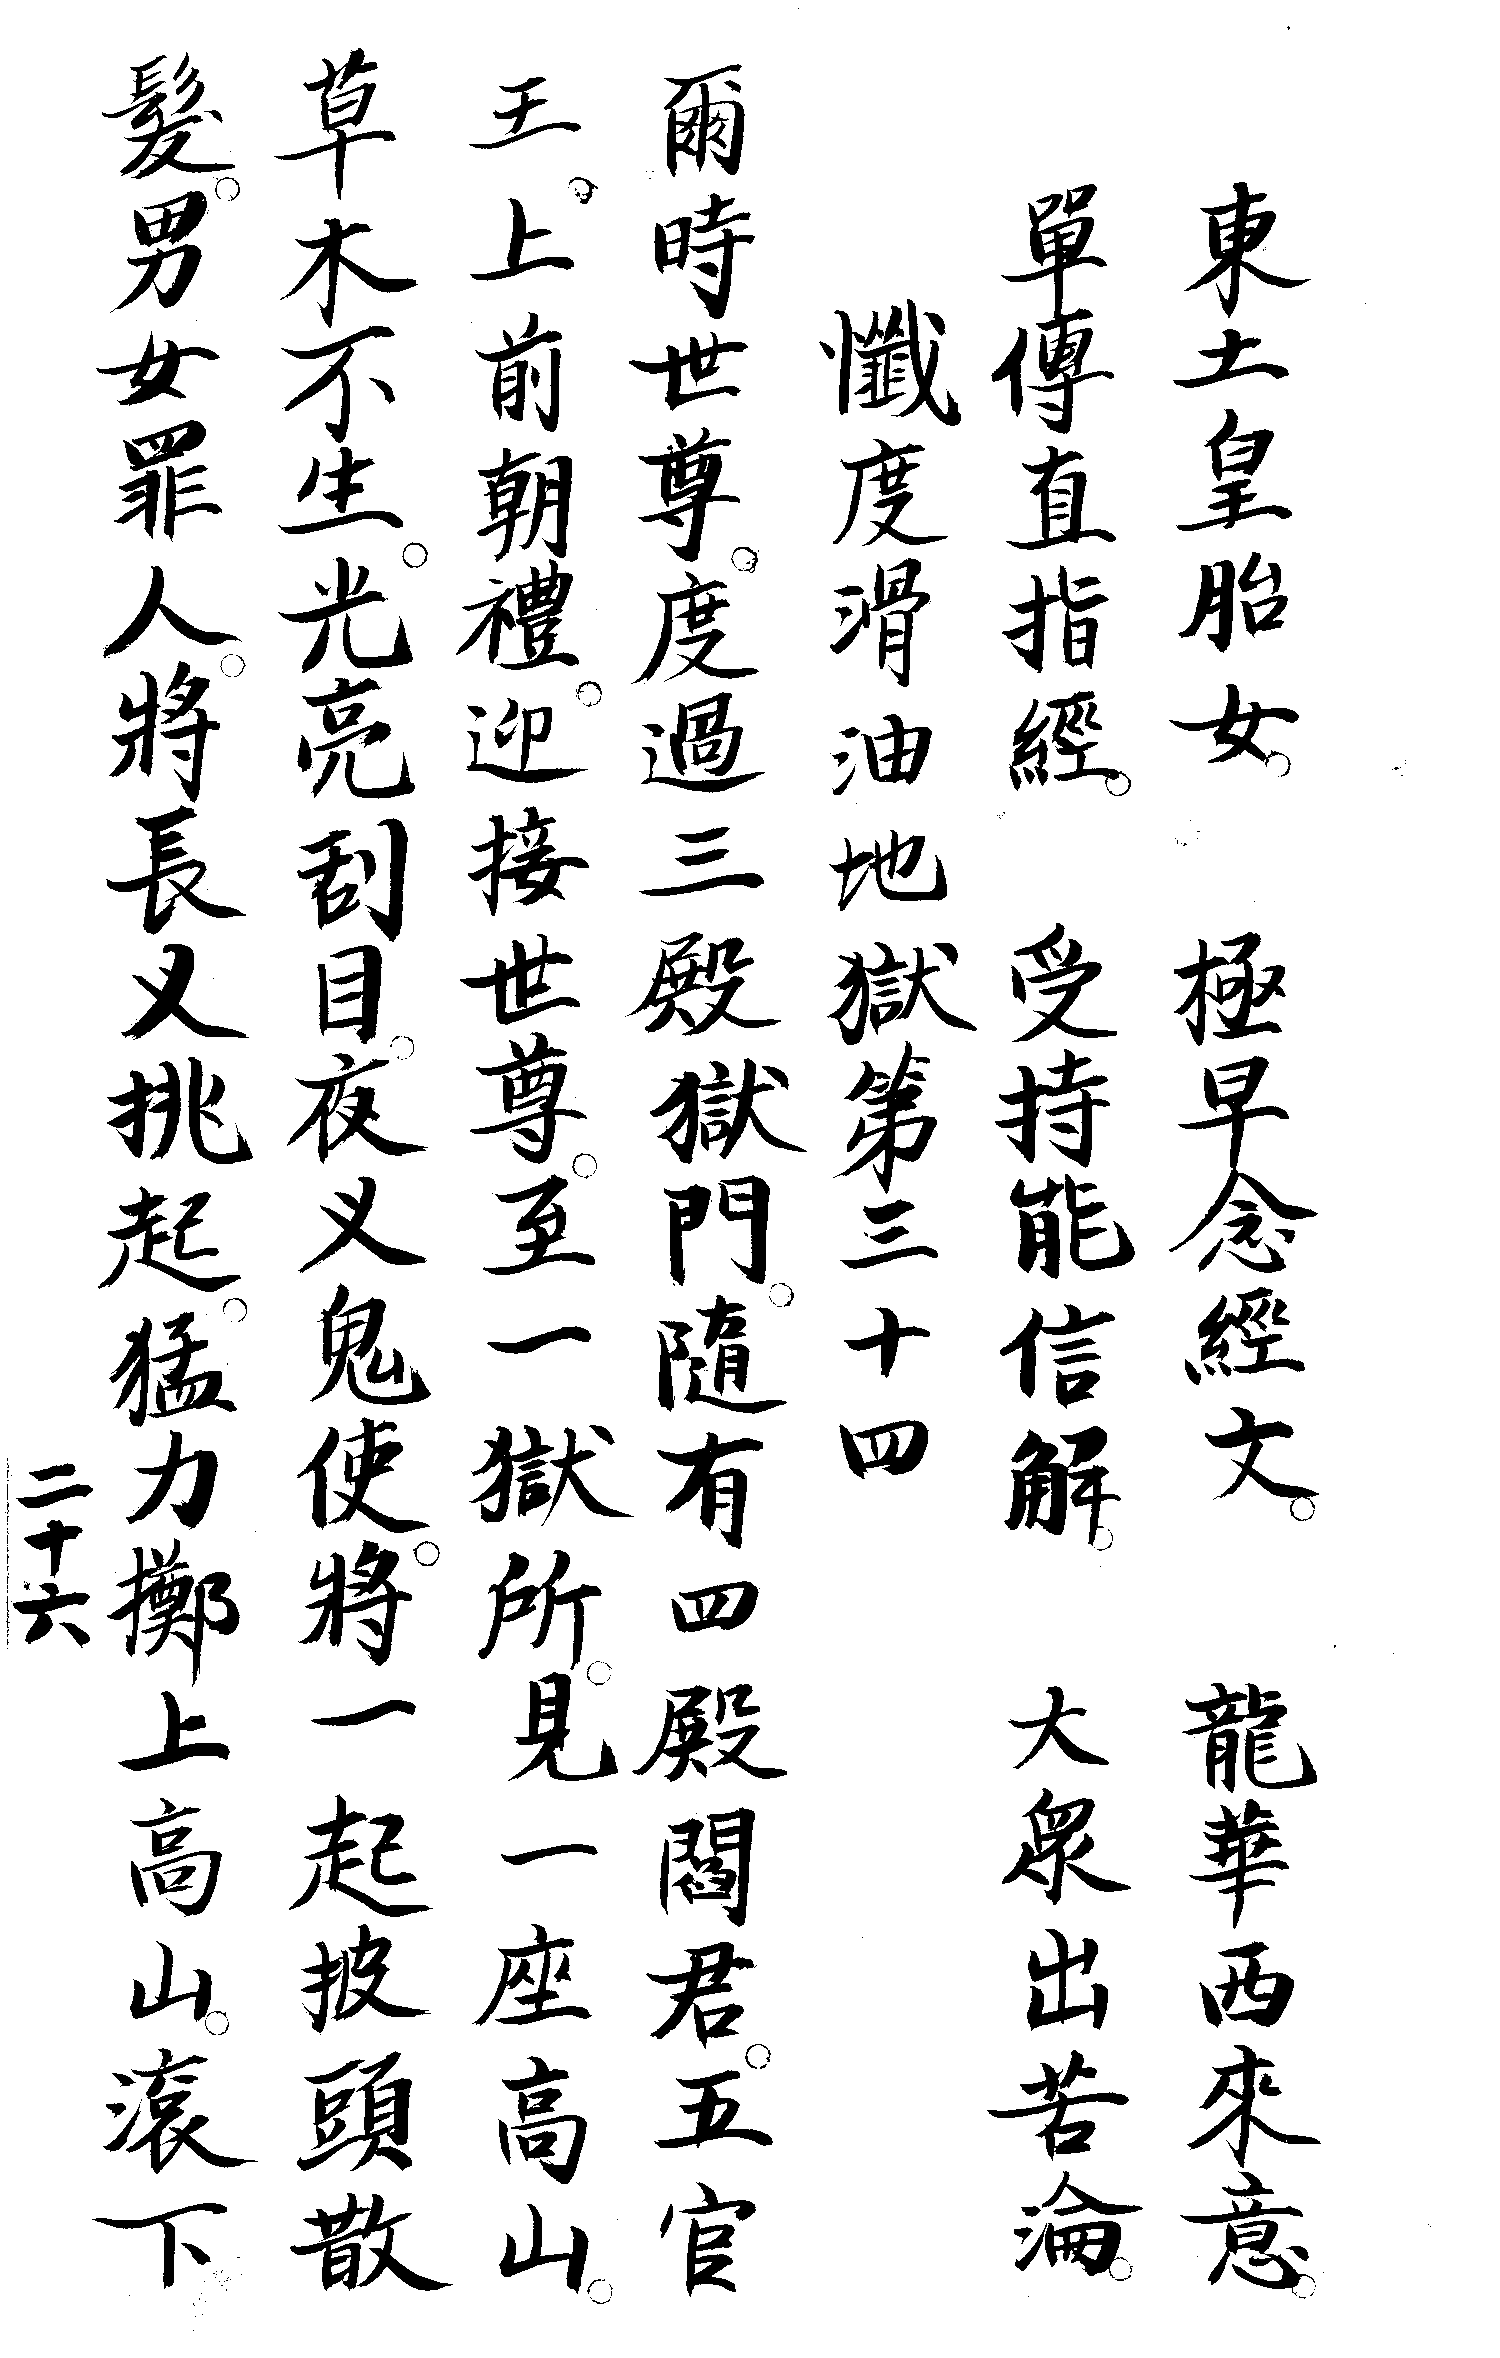 東土皇胎女。　極早念經文。　龍華西來意。
單傳直指經。　受持能信解。　大眾出苦淪。
懺度滑油地獄第三十四
爾時世尊。度過三殿獄門。隨有四殿閻君。五官
王。上前朝禮。迎接世尊。至一獄所。見一座高山。
草木不生。光亮刮目。夜叉鬼使。將一起披頭散
髮。男女罪人。將長叉挑起。猛力擲上高山。滾下
二十六